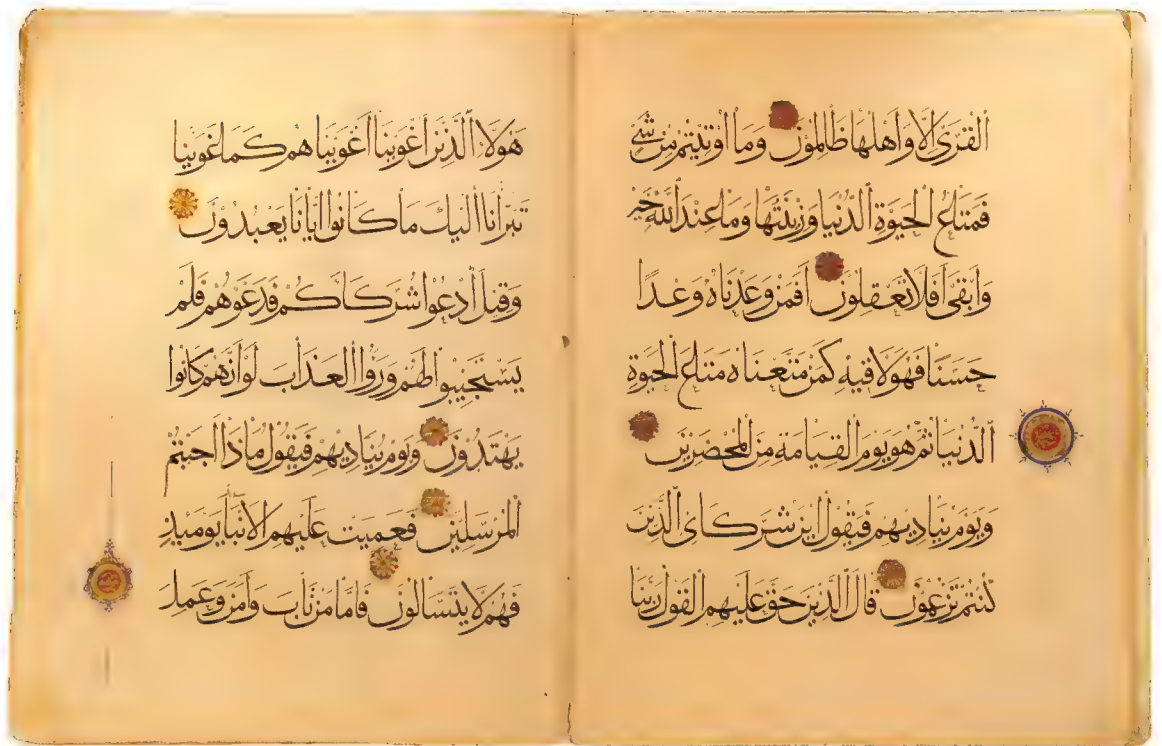 القرى الا واهلها ظالمون وما اوتيتم من شي
فمتاع الحيوة الدنيا وزينتها وما عند الله خير
وابقى افلا تعقلون افمن وعدناه وعدا
حسنا فهو لاقيه كمن متعناه متاع الحيوة
الدنيا ثم هو يوم القيامة من المحضرين
ويوم يناديهم فيقول اين شركاى الذين
كنتم تزعمون قال الذين حق عليهم القول ربنا
هولا الذين اغوينا اغويناهم كما غوينا
تبرانا اليك ما كانوا ايانا يعبدون
وقيل ادعوا شركاكم فدعوهم فلم
يستجيبوا لهم وراوا العذاب لو انهم كانوا
يهتدون ويوم يناديهم فيقول ماذا اجبتم
المرسلين فعميت عليهم الانبا يوميذ
فهم لا يتسالون فاما من تاب وامن وعمل